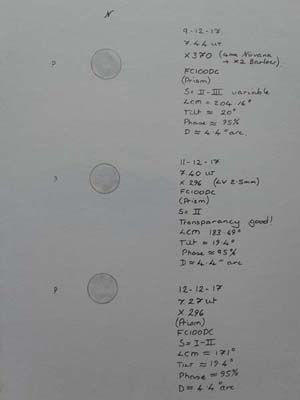 N
9-12-17
7.44 ut
x370 (4mm Nirvana
→ x2 Barlow)
P
FC100DC
(Prism)
S= II-III variable
LCM = 204.16°
Tilt ≈ 20°
Phase ≈ 95%
D ≈ 4.4" arc.
11-12-17
7.40 ut
x 296 (LV 2.5mm)
FC100DC
(Prism)
S= II
Transparancy good!
LCM 183.69°
Tilt ≈ 19.4°
Phase ≈ 95%
D ≈ 4.4" arc
P
12-12-17
7.27 ut
x 296
(Prism)
FC100DC
S= I-II
LCM ≈ 171°
Tilt ≈ 19.4°
Phase ≈ 95%
D ≈ 4.4" arc